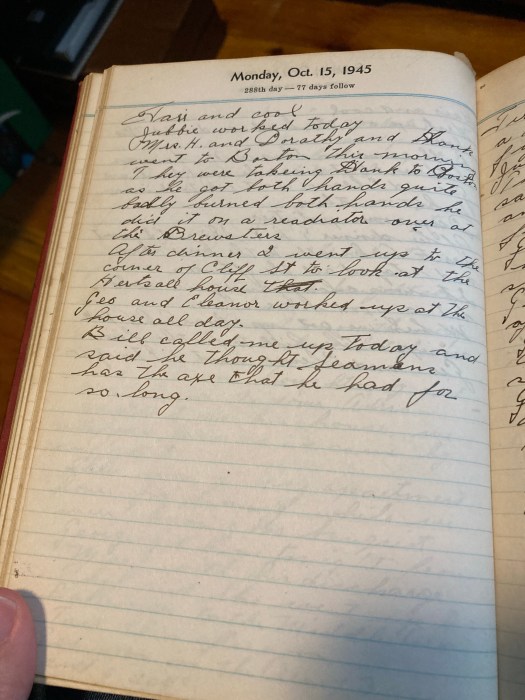 Monday, Oct. 15, 1945
288th day — 77 days follow
Fair and cool
Jubbie worked today
Mrs. H. and Dorathy and Hank
went to Boston this morning
They were takeing Hank to
as he got both hands quite
badly burned both hands he
did it on a readiator over at
the Brewsters
After dinner I went up to the
corner of Cliff St to look at the
house that
Geo and Eleanor worked up at the
house all day.
Bill called me up today and
said he thought Seamans
has the axe that he had for
so long.